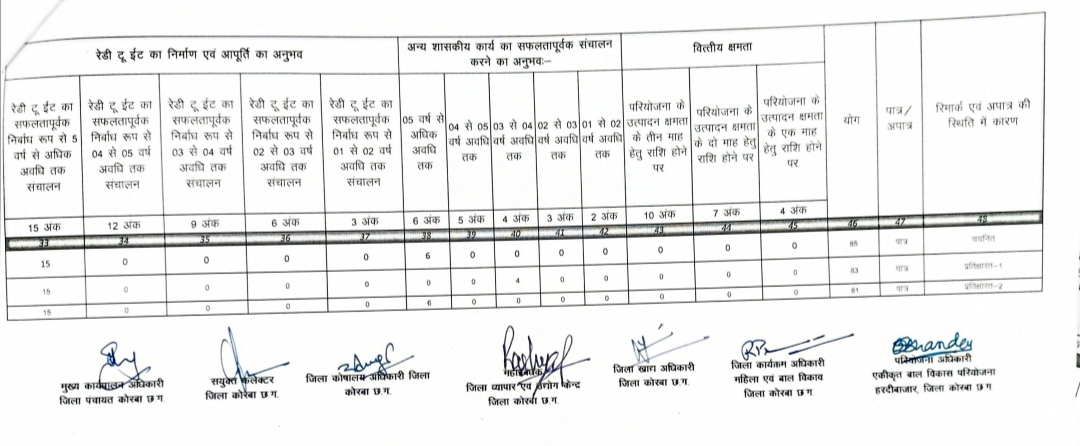 रेडी टू ईट का निर्माण एवं आपूर्ति का अनुभव
अन्य शासकीय कार्य का सफलतापूर्वक संचालन
करने का अनुभवः–
वित्तीय क्षमता
योग
पात्र/
अपात्र
रिमार्क एवं अपात्र की
स्थिति में कारण
रेडी टू ईट का
सफलतापूर्वक
निर्बाध रूप से 5
वर्ष से अधिक
अवधि तक
संचालन
रेडी टू ईट का
सफलतापूर्वक
निर्बाध रूप से
04 से 05 वर्ष
अवधि तक
संचालन
रेडी टू ईट का
सफलतापूर्वक
निर्बाध रूप से
03 से 04 वर्ष
अवधि तक
संचालन
रेडी टू ईट का
सफलतापूर्वक
निर्बाध रूप से
02 से 03 वर्ष
अवधि तक
संचालन
रेडी टू ईट का
सफलतापूर्वक
निर्बाध रूप से
01 से 02 वर्ष
अवधि तक
संचालन
05 वर्ष से
अधिक
अवधि
तक
04 से 05
वर्ष अवधि
तक
03 से 04
वर्ष अवधि
तक
02 से 03
वर्ष अवधि
तक
01 से 02
वर्ष अवधि
तक
परियोजना के
उत्पादन क्षमता
के तीन माह
हेतु राशि होने
पर
परियोजना के
उत्पादन क्षमता
के दो माह हेतु
राशि होने पर
परियोजना के
उत्पादन क्षमता
के एक माह
हेतु राशि होने
पर
15 अंक 12 अंक 9 अंक 6 अंक 3 अंक 6 अंक 5 अंक 4 अंक 3 अंक 2 अंक 10 अंक 7 अंक 4 अंक
33 34 35 36 37 38 39 40 41 42 43 44 45 46 47 48
15 0 0 0 0 6 0 0 0 0 0 0 0 85 पात्र चयनित
15 0 0 0 0 0 0 4 0 0 0 0 0 83 पात्र प्रतिक्षारत-1
15 0 0 0 0 6 0 0 0 0 0 0 0 81 पात्र प्रतिक्षारत-2
मुख्य कार्यपालन अधिकारी
जिला पंचायत कोरबा छ.ग.
संयुक्त कलेक्टर
जिला कोरबा छ.ग.
जिला कोषालय अधिकारी जिला
कोरबा छ.ग.
महाप्रबंधक
जिला व्यापार एवं उद्योग केन्द्र
जिला कोरबा छ.ग.
जिला खाद्य अधिकारी
जिला कोरबा छ.ग.
जिला कार्यक्रम अधिकारी
महिला एवं बाल विकाव
जिला कोरबा छ.ग.
परियोजना अधिकारी
एकीकृत बाल विकास परियोजना
हरदीबाजार, जिला कोरबा छ.ग.